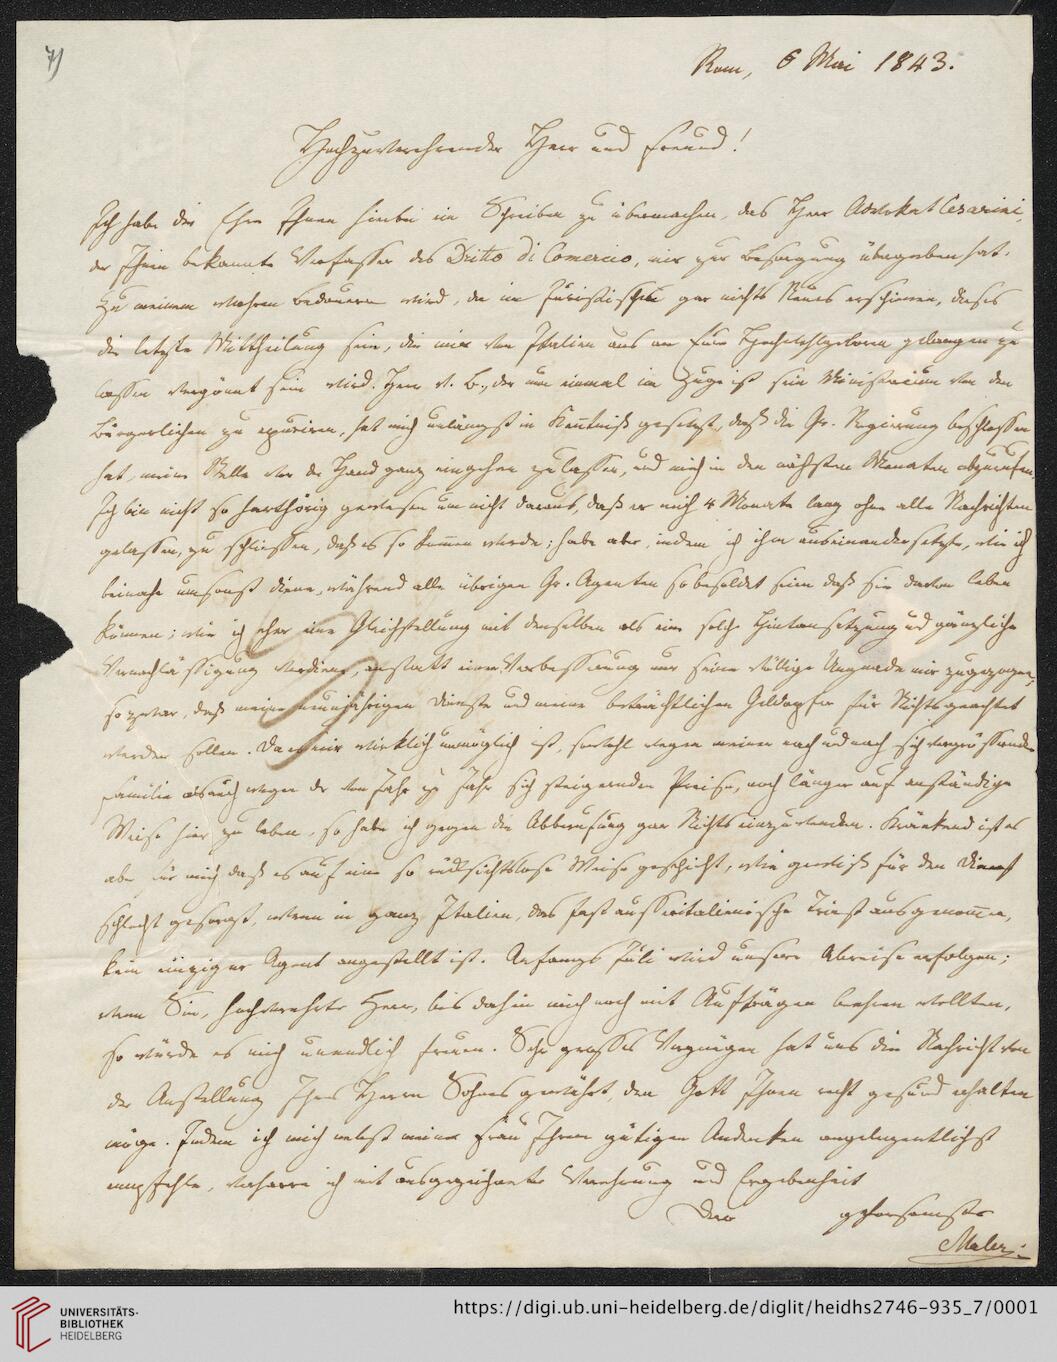 7)
Rom, 6 Mai 1843.
Hochzuverehrender Herr und Freund!
Ich habe die Ehre Ihnen hiebei ein Schreiben zu übermachen, das Herr Advokat Cesarini,
der Ihnen bekannte Verfasser des Dritto di Comercio, mir zur Besorgung übergeben hat.
Zu meinem wahren Bedauern wird, da im Juristischen gar nichts Neues erschienen, dieses
die letzte Mittheilung sein, die mir von Italien aus an Euer Hochwohlgeboren gelangen zu
lassen vergönnt sein wird. Herr v. B., der nun einmal im Zuge ist sein Ministerium von den
Bürgerlichen zu epuriren, hat mich unlängst in Kenntniß gesetzt, daß die Gr. Regierung beschlossen
hat, meine Stelle vor der Hand ganz eingehen zu lassen, und mich in den nächsten Monaten abzurufen.
Ich bin nicht so harthörig gewesen um nicht daraus, daß er mich 4 Monate lang ohne alle Nachrichten
gelassen, zu schliessen, daß es so kommen werde; habe aber, indem ich ihm auseinandersetzte, wie ich
beinahe umsonst diene, während alle übrigen Gr. Agenten so besoldet seien daß sie davon leben
können; wie ich eher eine Gleichstellung mit denselben als eine solche Hintansetzung und gänzliche
Vernachlässigung verdiene, anstatt einer Verbesserung nur seine völlige Ungnade mir zugezogen,
so zwar, daß meine neunjährigen Dienste und meine beträchtlichen Geldopfer für Nichts geachtet
werden sollen. Da es mir wirklich unmöglich ist, sowohl wegen meiner nach und nach sich vergrössernden
Familie als auch wegen der von Jahr zu Jahr sich steigernden Preise, noch länger auf anständige
Weise hier zu leben, so habe ich gegen die Abberufung gar Nichts einzuwenden. Kränkend ist es
aber für mich daß es auf eine so rücksichtslose Weise geschieht, wie gewiß für den Dienst
schlecht gesorgt, wenn in ganz Italien, das fast ausseritalienische Triest ausgenommen,
kein einziger Agent angestellt ist. Anfangs Juli wird unsere Abreise erfolgen;
wenn Sie, hochverehrter Herr, bis dahin mich noch mit Aufträgen beehren wollten,
so würde es mich unendlich freuen. Sehr grosses Vergnügen hat uns die Nachricht von
der Anstellung Ihres Herrn Sohnes gewährt, den Gott Ihnen recht gesund erhalten
möge. Indem ich mich nebst meiner Frau Ihrem gütigen Andenken angelegentlichst
empfehle, verharre ich mit ausgezeichneter Verehrung und Ergebenheit
Dero gehorsamster
Maler.
UNIVERSITÄTS-
BIBLIOTHEK
HEIDELBERG
https://digi.ub.uni-heidelberg.de/diglit/heidhs2746-935_7/0001